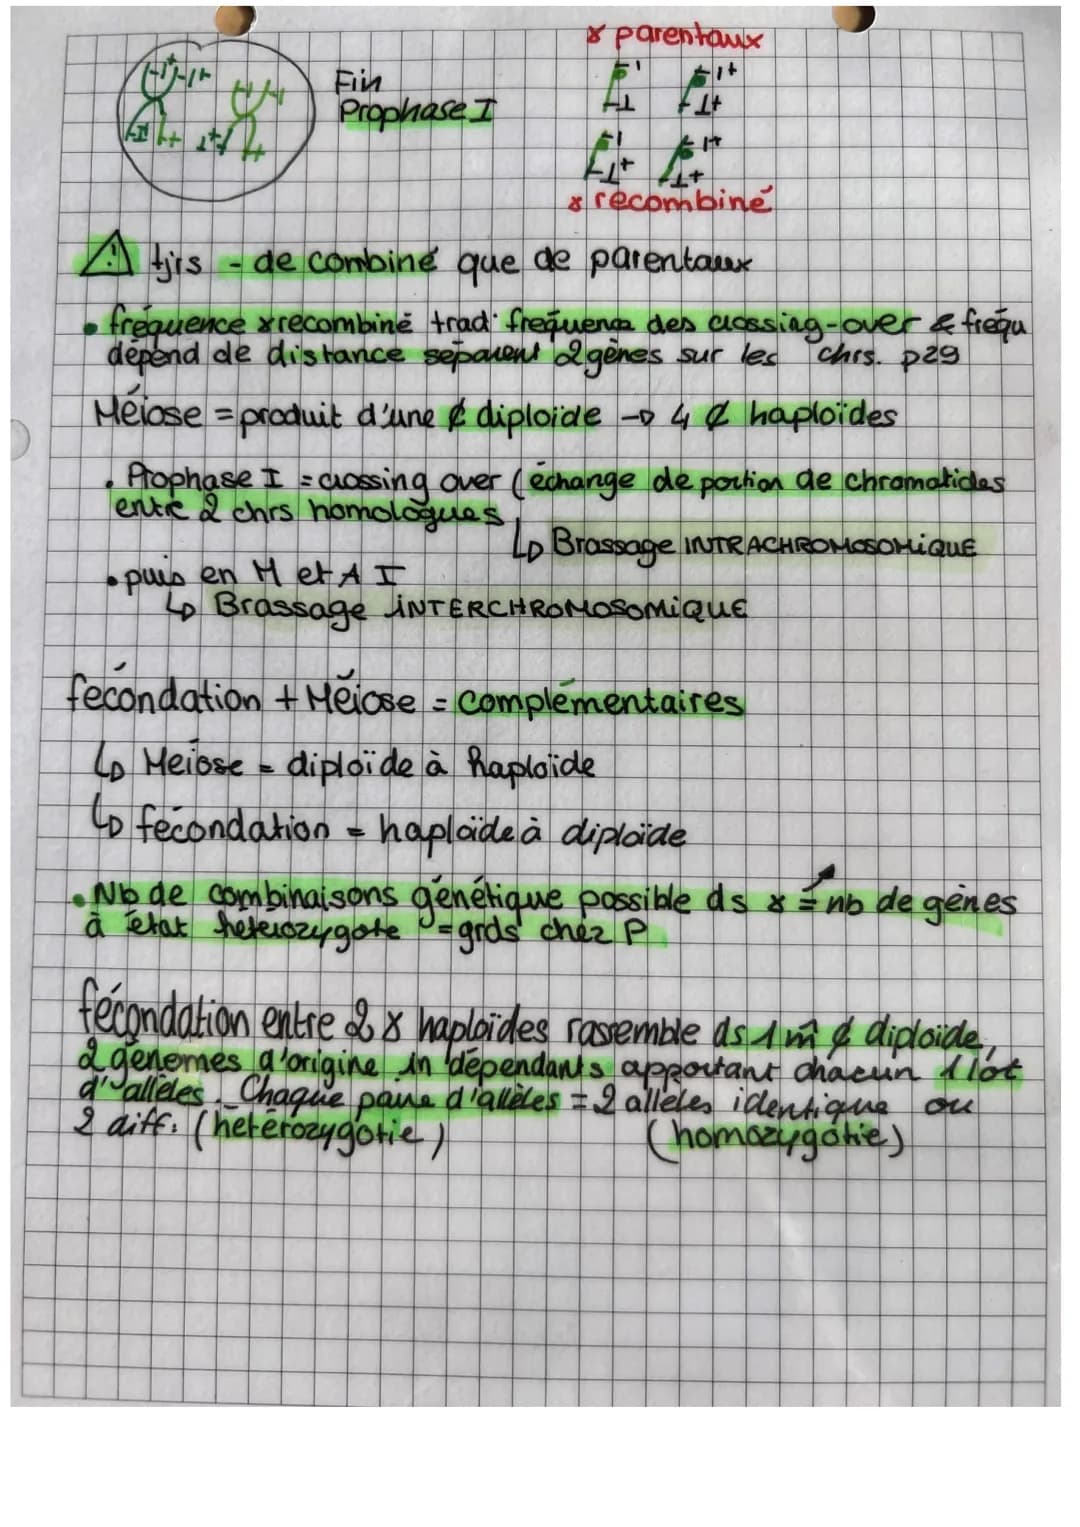 Fin
Prophase I
ɣ parentaux
ɣ recombiné
⚠ tjrs - de combiné que de parentaux
• fréquence ɣ recombiné trad. fréquence des crossing-over & fréqu
dépend de distance séparent 2 gènes sur les chrs. p29
Méiose = produit d'une ¢ diploïde → 4 ¢ haploïdes
. Prophase I = crossing over (échange de portion de chromatides
entre 2 chrs homologues
↳ Brassage INTRACHROMOSOMIQUE
• puis en M et A I
↳ Brassage INTERCHROMOSOMIQUE
fécondation + Méiose = complémentaires
↳ Meiose = diploïde à haploïde
↳ fécondation = haploïde à diploïde
• Nb de combinaisons génétique possible ds ɣ = nb de gènes
à état hétérozygote = grds chez P
fécondation entre 2 ɣ haploïdes rassemble ds 1 m̂ ¢ diploïde,
2 génomes d'origine indépendants apportant chacun 1 lot
d'allèles. Chaque paire d'allèles = 2 allèles identique ou
2 diff. (hétérozygotie) (homozygotie)